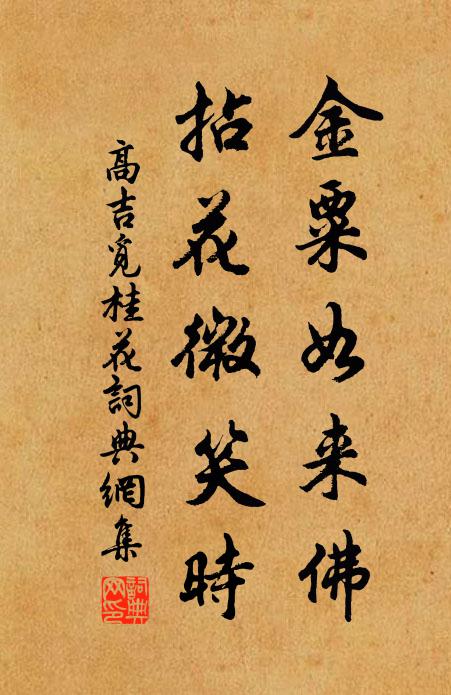 金粟如来佛
拈花微笑時
高吉覓桂花詞典網集
詞典网印